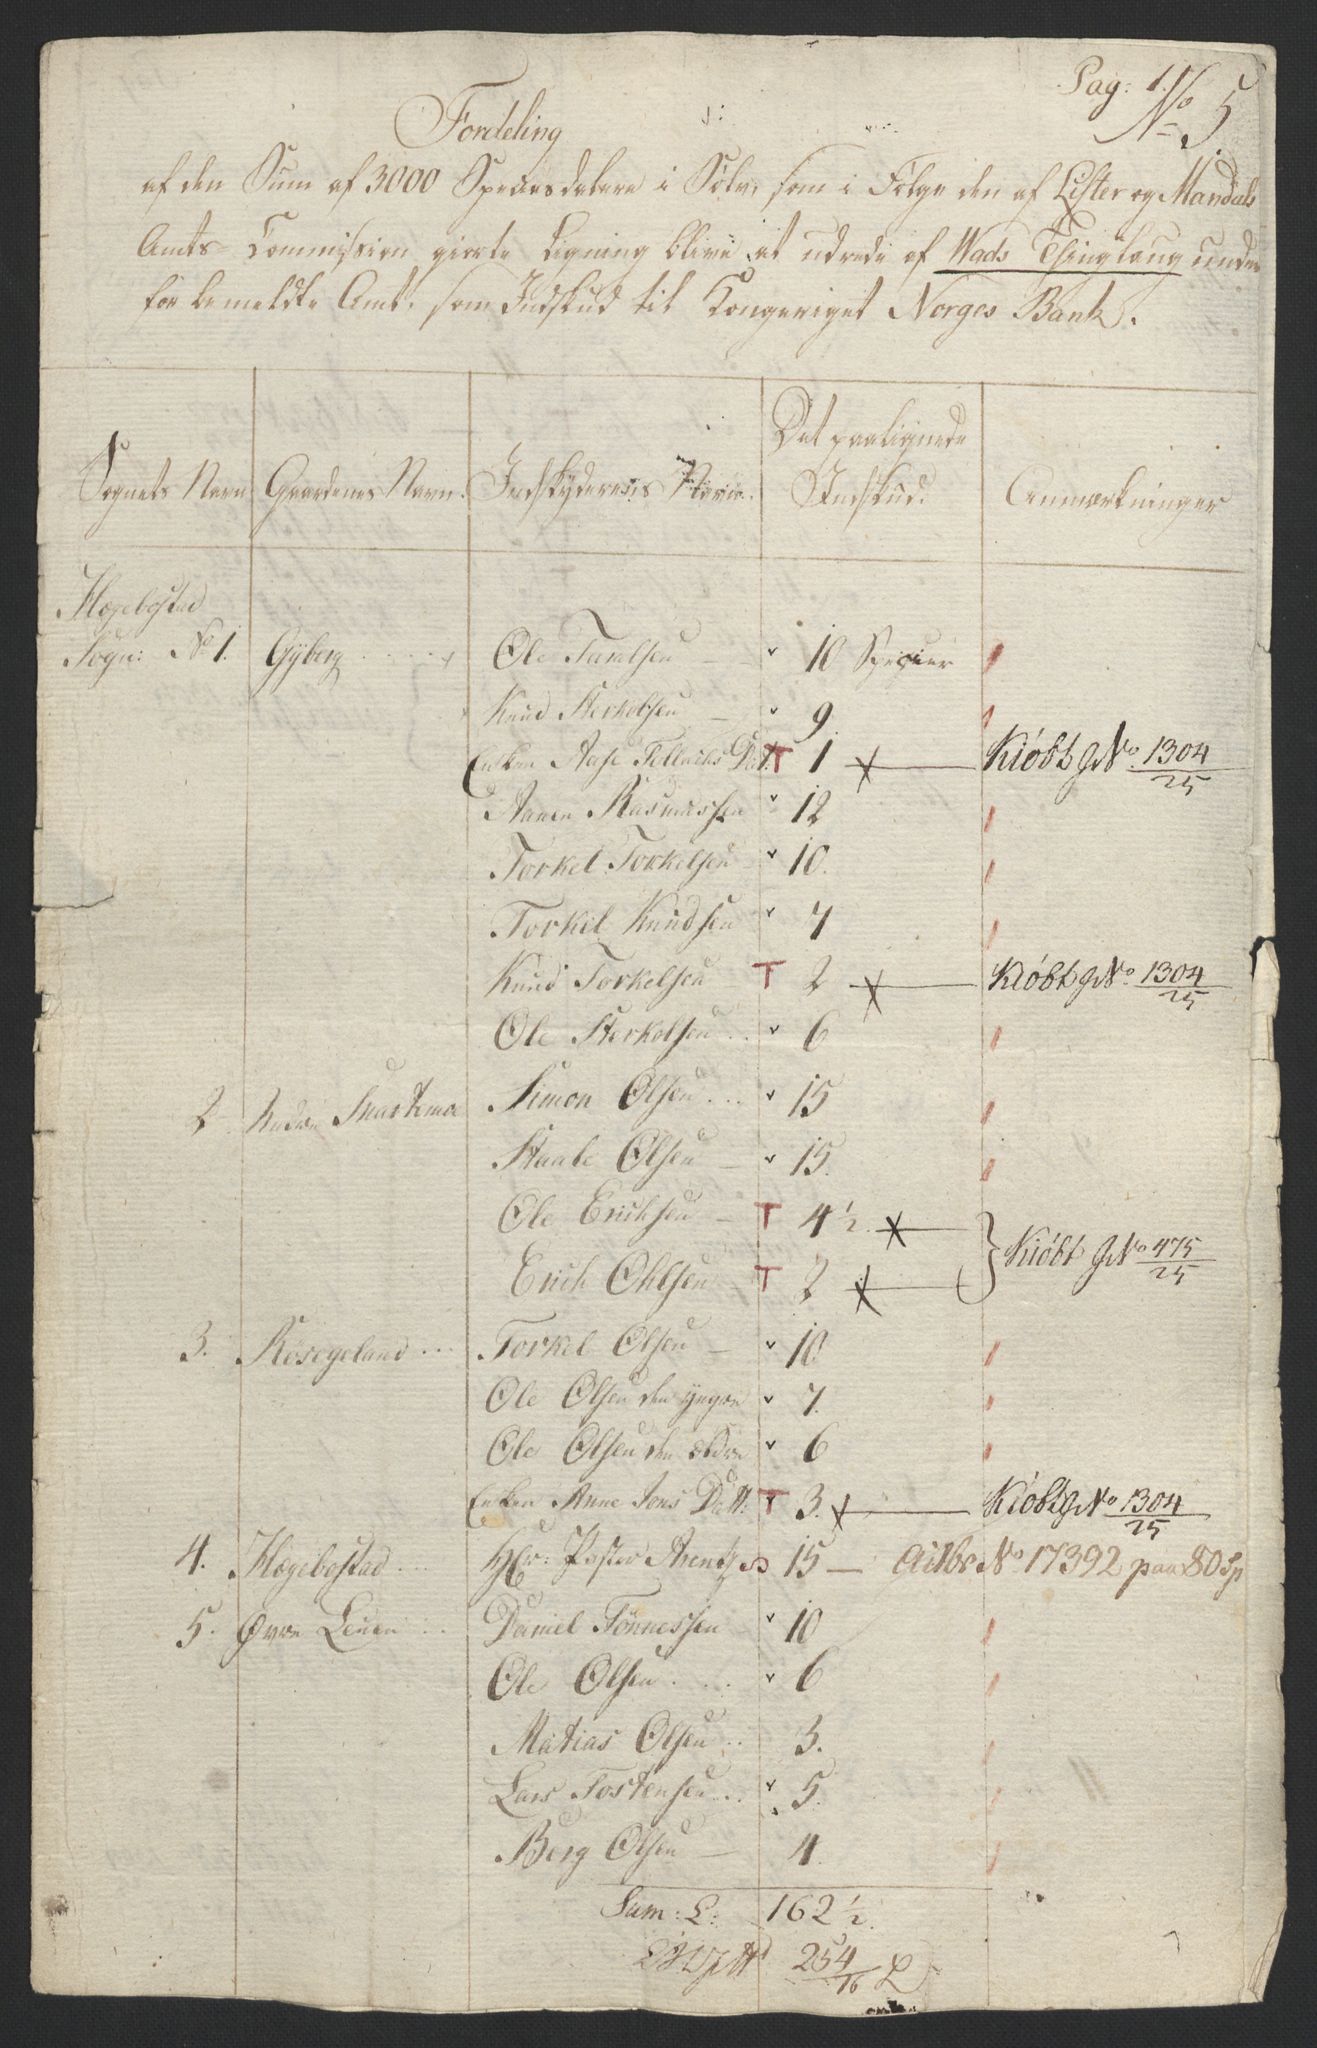 Pag: 1.
No 5.
Fordeling
af den Sum af 3000 Speciesdalere i Sølv, som i Følge den af Lister og Mandals
Amts-Commission giorte Ligning blive at udrede af Wads Thinglaug unden
for bemeldte Amt, som Indskud til Kongeriget Norges Bank.
Sognets Navn Gaardenes Navn. Indskydernes Navne. Det paalignede Indskud. Anmærkninger
Hægebostad
Sogn: No 1. Gyberg Ole Tarelsen 10 Specier
Knud Sterkelsen 9
Enken Aase Tellevs Dat. T 1 Kiöbt No 1304/25
Aanen Rasmussen 12
Torkel Torkelsen 10.
Torkel Knudsen 7
Knud Torkelsen T 2 Kiöbt No 1304/25
Ole Sterkelsen 6
2 Nedre Snartemoe Simon Olsen 15
Staale Olsen 15.
Ole Erichsen T 4 1/2. Kiöbt No 475/25
Erich Ohlsen T 2
3. Røsegeland Torkel Olsen 10
Ole Olsen den yngre 7.
Ole Olsen den ældre 6
Enken Anne Jons Datt: T 3. Kiöbt No 1304/25
4. Hægebostad Hr: Pastor Arentz 15 No 17392 paa 80 Sp
5. Øvre Leuen Daniel Tønnessen 10
Ole Olsen 6
Matias Olsen 3.
Lars Tostensen 5.
Berg Olsen 4.
Sum: L: 162 1/2.
254/16